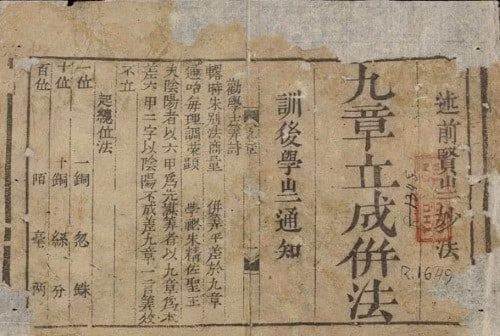 述前賢㞢妙法
九章立成併法
訓後學㞢通知
勸學古筭詩
朱別法商量 併筭平差於九章
通 每理調 學 朱精佐聖王
夫陰陽者以六甲為元筭者以九章為本
差六甲二字以陰陽不成差九章一言筭
不立
起總位法
一位 一銅 忽 銖
十位 十銅 絲 分
百位 陌 毫 兩
R.1649